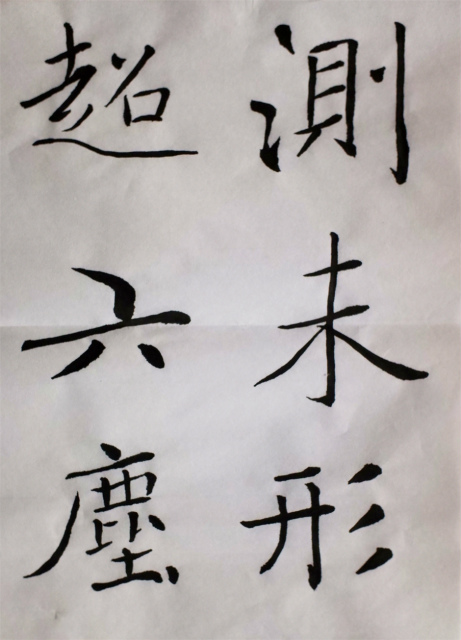 測未形
超六塵